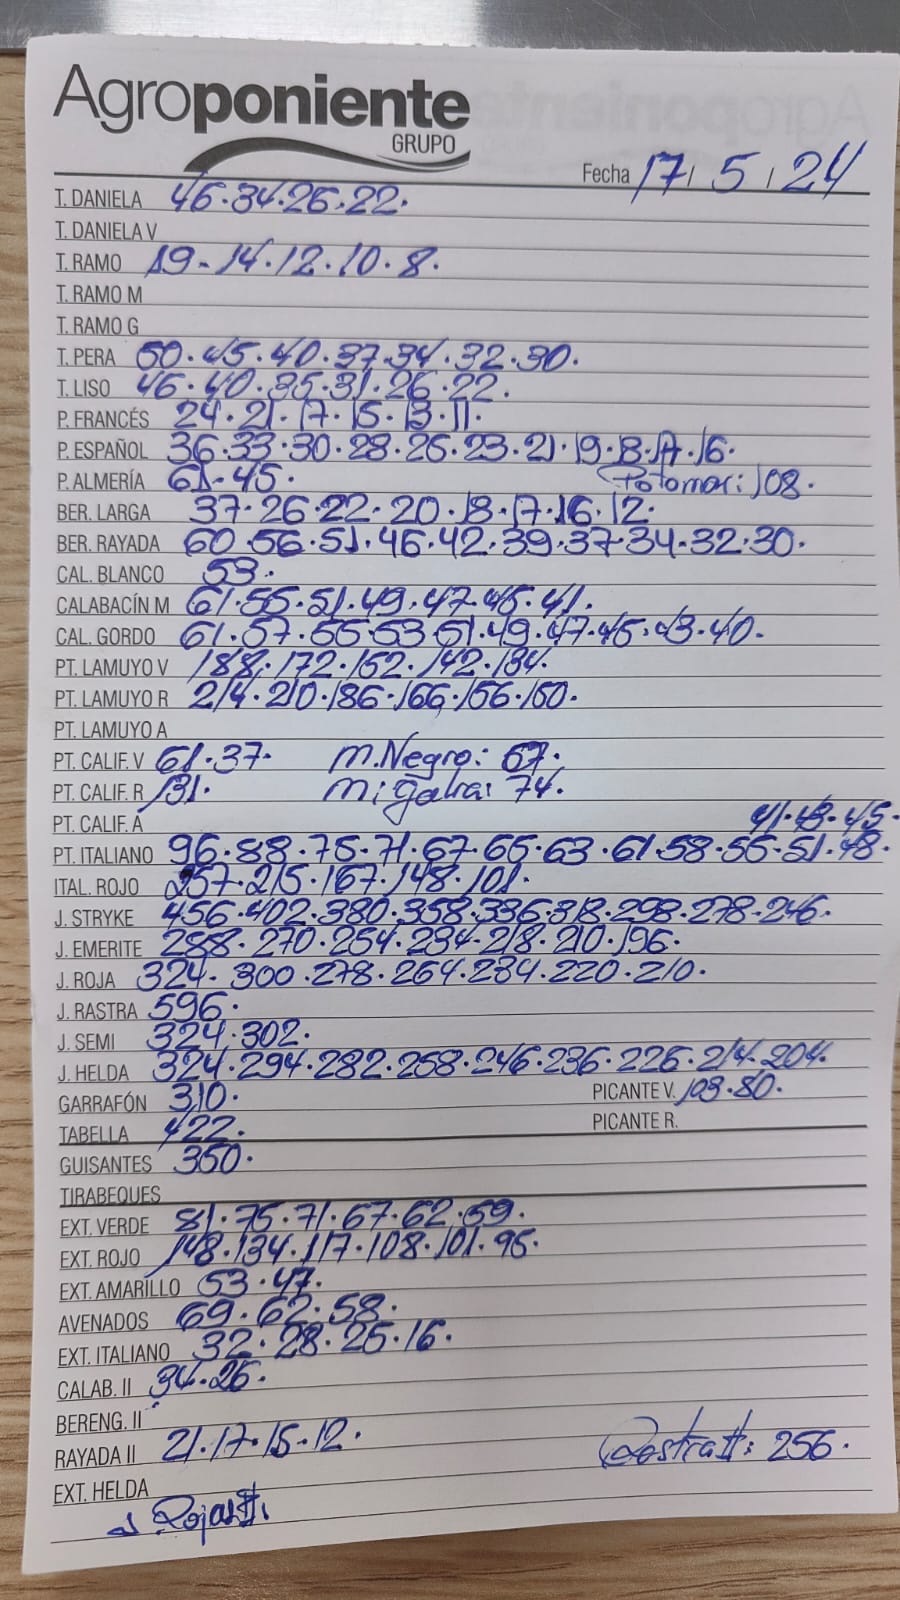 Agroponiente
GRUPO
Fecha 17/ 5 / 24
T. DANIELA 46.34.26.22.
T. DANIELA V
T. RAMO 19-14.12.10.8.
T. RAMO M
T. RAMO G
T. PERA 50.45.40.37.34.32.30.
T. LISO 46.40.35.31.26.22.
P. FRANCÉS 24.21.17.15.13.11.
P. ESPAÑOL 36.33.30.28.26.23.21.19.18.17.16.
P. ALMERÍA 61.45. Potomac: 108.
BER. LARGA 37.26.22.20.18.17.16.12.
BER. RAYADA 60.56.51.46.42.39.37.34.32.30.
CAL. BLANCO 53.
CALABACÍN M 61.55.51.49.47.45.41.
CAL. GORDO 61.57.55.53.51.49.47.45.43.40.
PT. LAMUYO V 188.172.152.142.134.
PT. LAMUYO R 214.210.186.166.156.150.
PT. LAMUYO A
PT. CALIF. V 61.37. M.Negro: 67.
PT. CALIF. R 131. M: Galia: 74.
PT. CALIF. A 41.43.45.
PT. ITALIANO 96.88.75.71.67.65.63.61.58.55.51.48.
ITAL. ROJO 257.215.167.148.101.
J. STRYKE 456.402.380.358.336.318.298.278.246.
J. EMERITE 288.270.254.234.218.210.196.
J. ROJA 324.300.278.264.234.220.210.
J. RASTRA 596.
J. SEMI 324.302.
J. HELDA 324.294.282.258.246.236.226.214.204.
GARRAFÓN 310. PICANTE V. 103.80.
TABELLA 422. PICANTE R.
GUISANTES 350.
TIRABEQUES
EXT. VERDE 81.75.71.67.62.59.
EXT. ROJO 148.134.117.108.101.95.
EXT. AMARILLO 53.47.
AVENADOS 69.62.58.
EXT. ITALIANO 32.28.25.16.
CALAB. II 34.26.
BERENG. II
RAYADA II 21.17.15.12. Rastra II: 256.
EXT. HELDA
J Roja II.